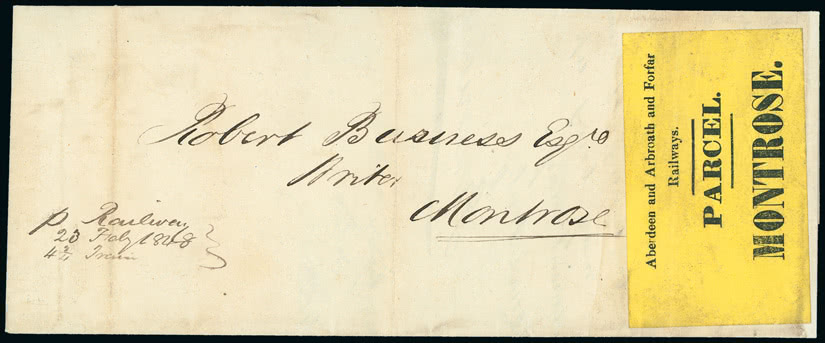 Robert Business Esqre
Writer
Montrose
p Railway
23 Feby 1848
Train
Aberdeen and Arbroath and Forfar
Railways.
PARCEL.
MONTROSE.